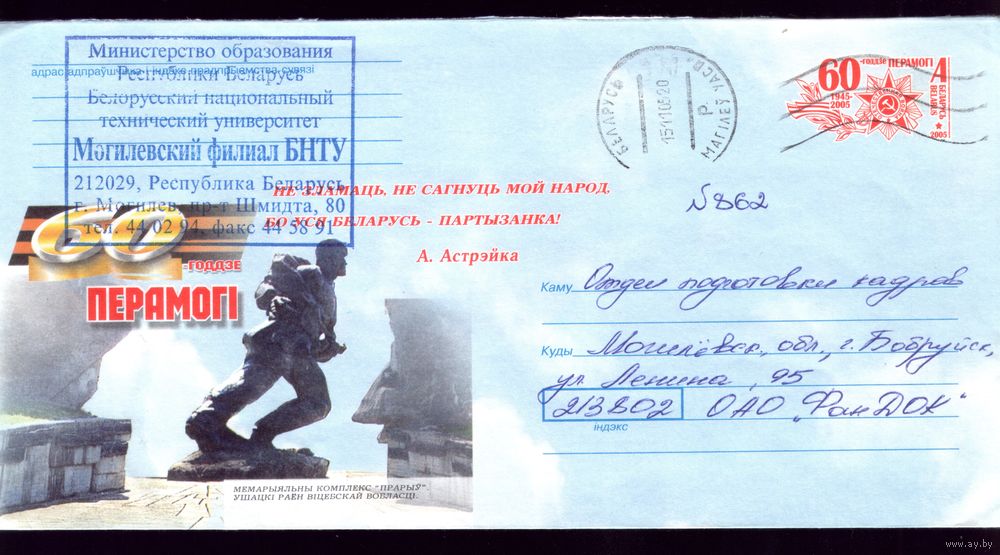 Министерство образования
Республики Беларусь
адрас адпраўшчыка і індэкс прадпрыемства сувязі
Белорусский национальный
технический университет
Могилевский филиал БНТУ
212029, Республика Беларусь
г. Могилев, пр-т Шмидта, 80
тел. 44 02 94, факс 44 58 91
БЕЛАРУСЬ
МАГІЛЕЎ
60-годдзе ПЕРАМОГІ
1945-
2005
А
БЕЛАРУСЬ
BELARUS
2005
НЕ ЗЛАМАЦЬ, НЕ САГНУЦЬ МОЙ НАРОД,
БО ЎСЯ БЕЛАРУСЬ - ПАРТЫЗАНКА!
А. Астрэйка
N 862
60
-ГОДДЗЕ
ПЕРАМОГІ
Каму Отдел подготовки кадров
Куды Могилёвск. обл., г. Бобруйск,
ул. Ленина, 95
213802 ОАО "ФанДОК"
індэкс
МЕМАРЫЯЛЬНЫ КОМПЛЕКС "ПРАРЫЎ".
УШАЦКІ РАЁН ВІЦЕБСКАЙ ВОБЛАСЦІ.
www.ay.by